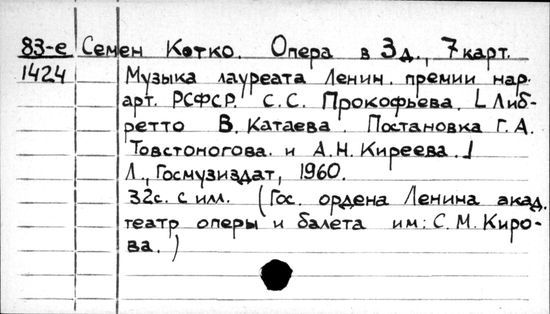 83-е Семен Котко. Опера в 3 д., 7 карт.
1424 Музыка лауреата Ленин. премии нар.
арт. РСФСР. С.С. Прокофьева. [Либ-
ретто В. Катаева. Постановка Г.А.
Товстоногова. и А.Н. Киреева.]
Л., Госмузиздат, 1960.
32с. с илл. (Гос. ордена Ленина акад.
театр оперы и балета им: С.М. Киро-
ва.)